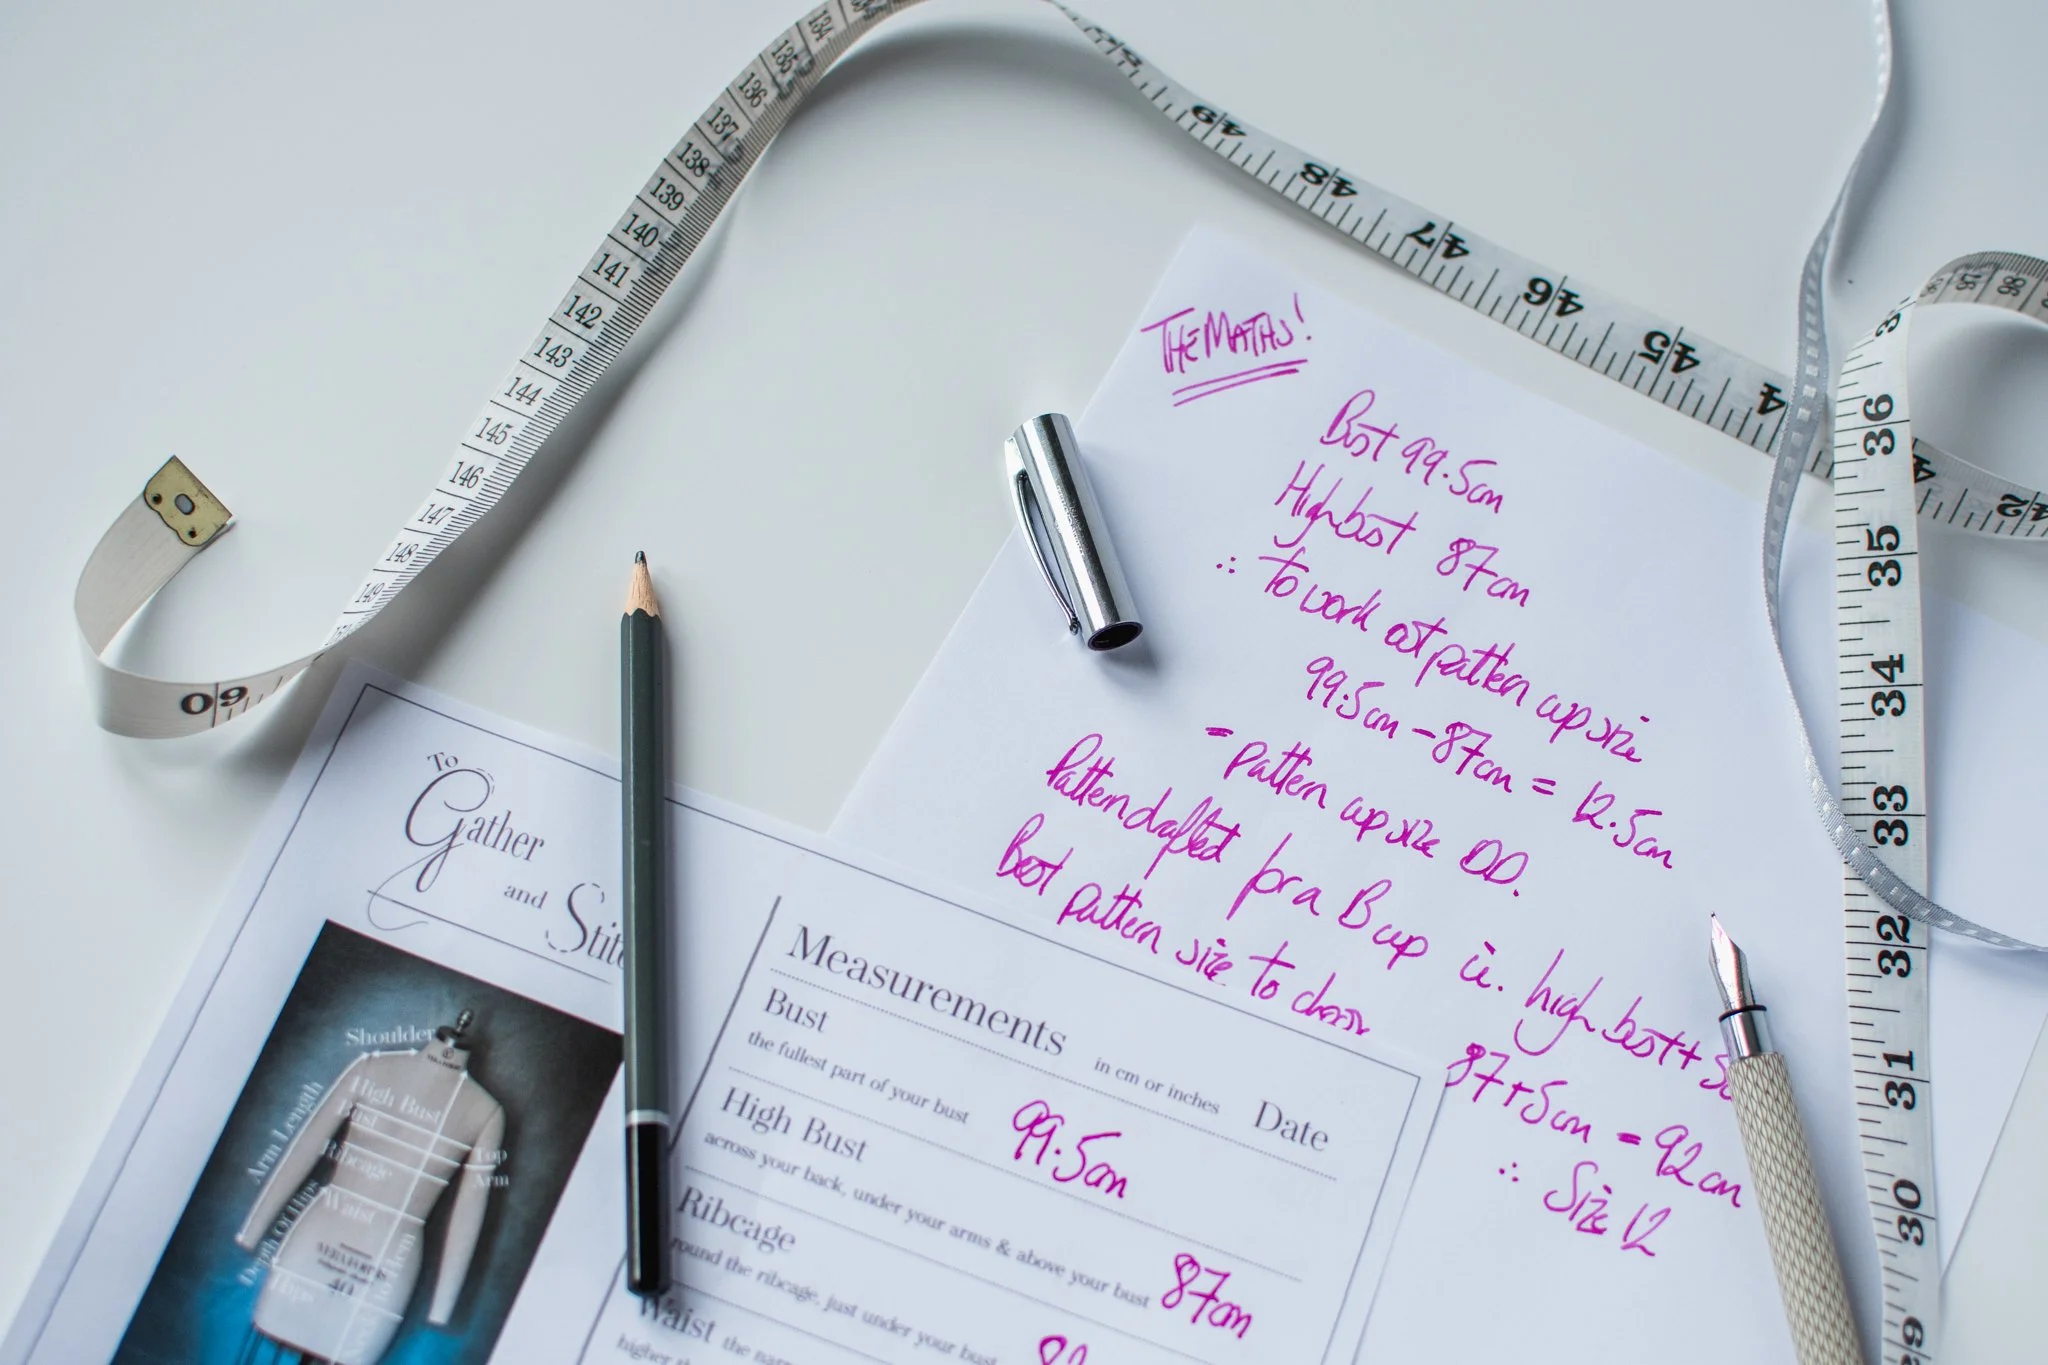 THE MATHS!
Bust 99.5cm
High bust 87cm
∴ To work out pattern cup size
99.5cm - 87cm = 12.5cm
= pattern cup size DD.
Pattern drafted for a B cup ie. high bust + 5
Best pattern size to choose
87+5cm = 92cm
∴ Size 12
To
Gather
and Stit
Measurements in cm or inches Date
Bust
the fullest part of your bust 99.5cm
High Bust
across your back, under your arms & above your bust 87cm
Ribcage
round the ribcage, just under your bust
Waist the narr
higher th
Shoulder
High Bust
Bust
Ribcage
Waist
Hips
Arm Length
Top
Arm
40
134
135
136
137
138
139
140
141
142
143
144
145
146
147
148
149
60
49
48
47
46
45
4
42
36
35
34
33
32
31
30
29